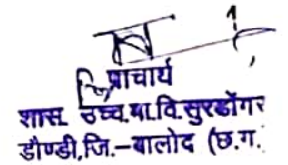 प्राचार्य
शास. उच्च.मा.वि.सुरडोंगर
डौण्डी,जि.-बालोद (छ.ग.